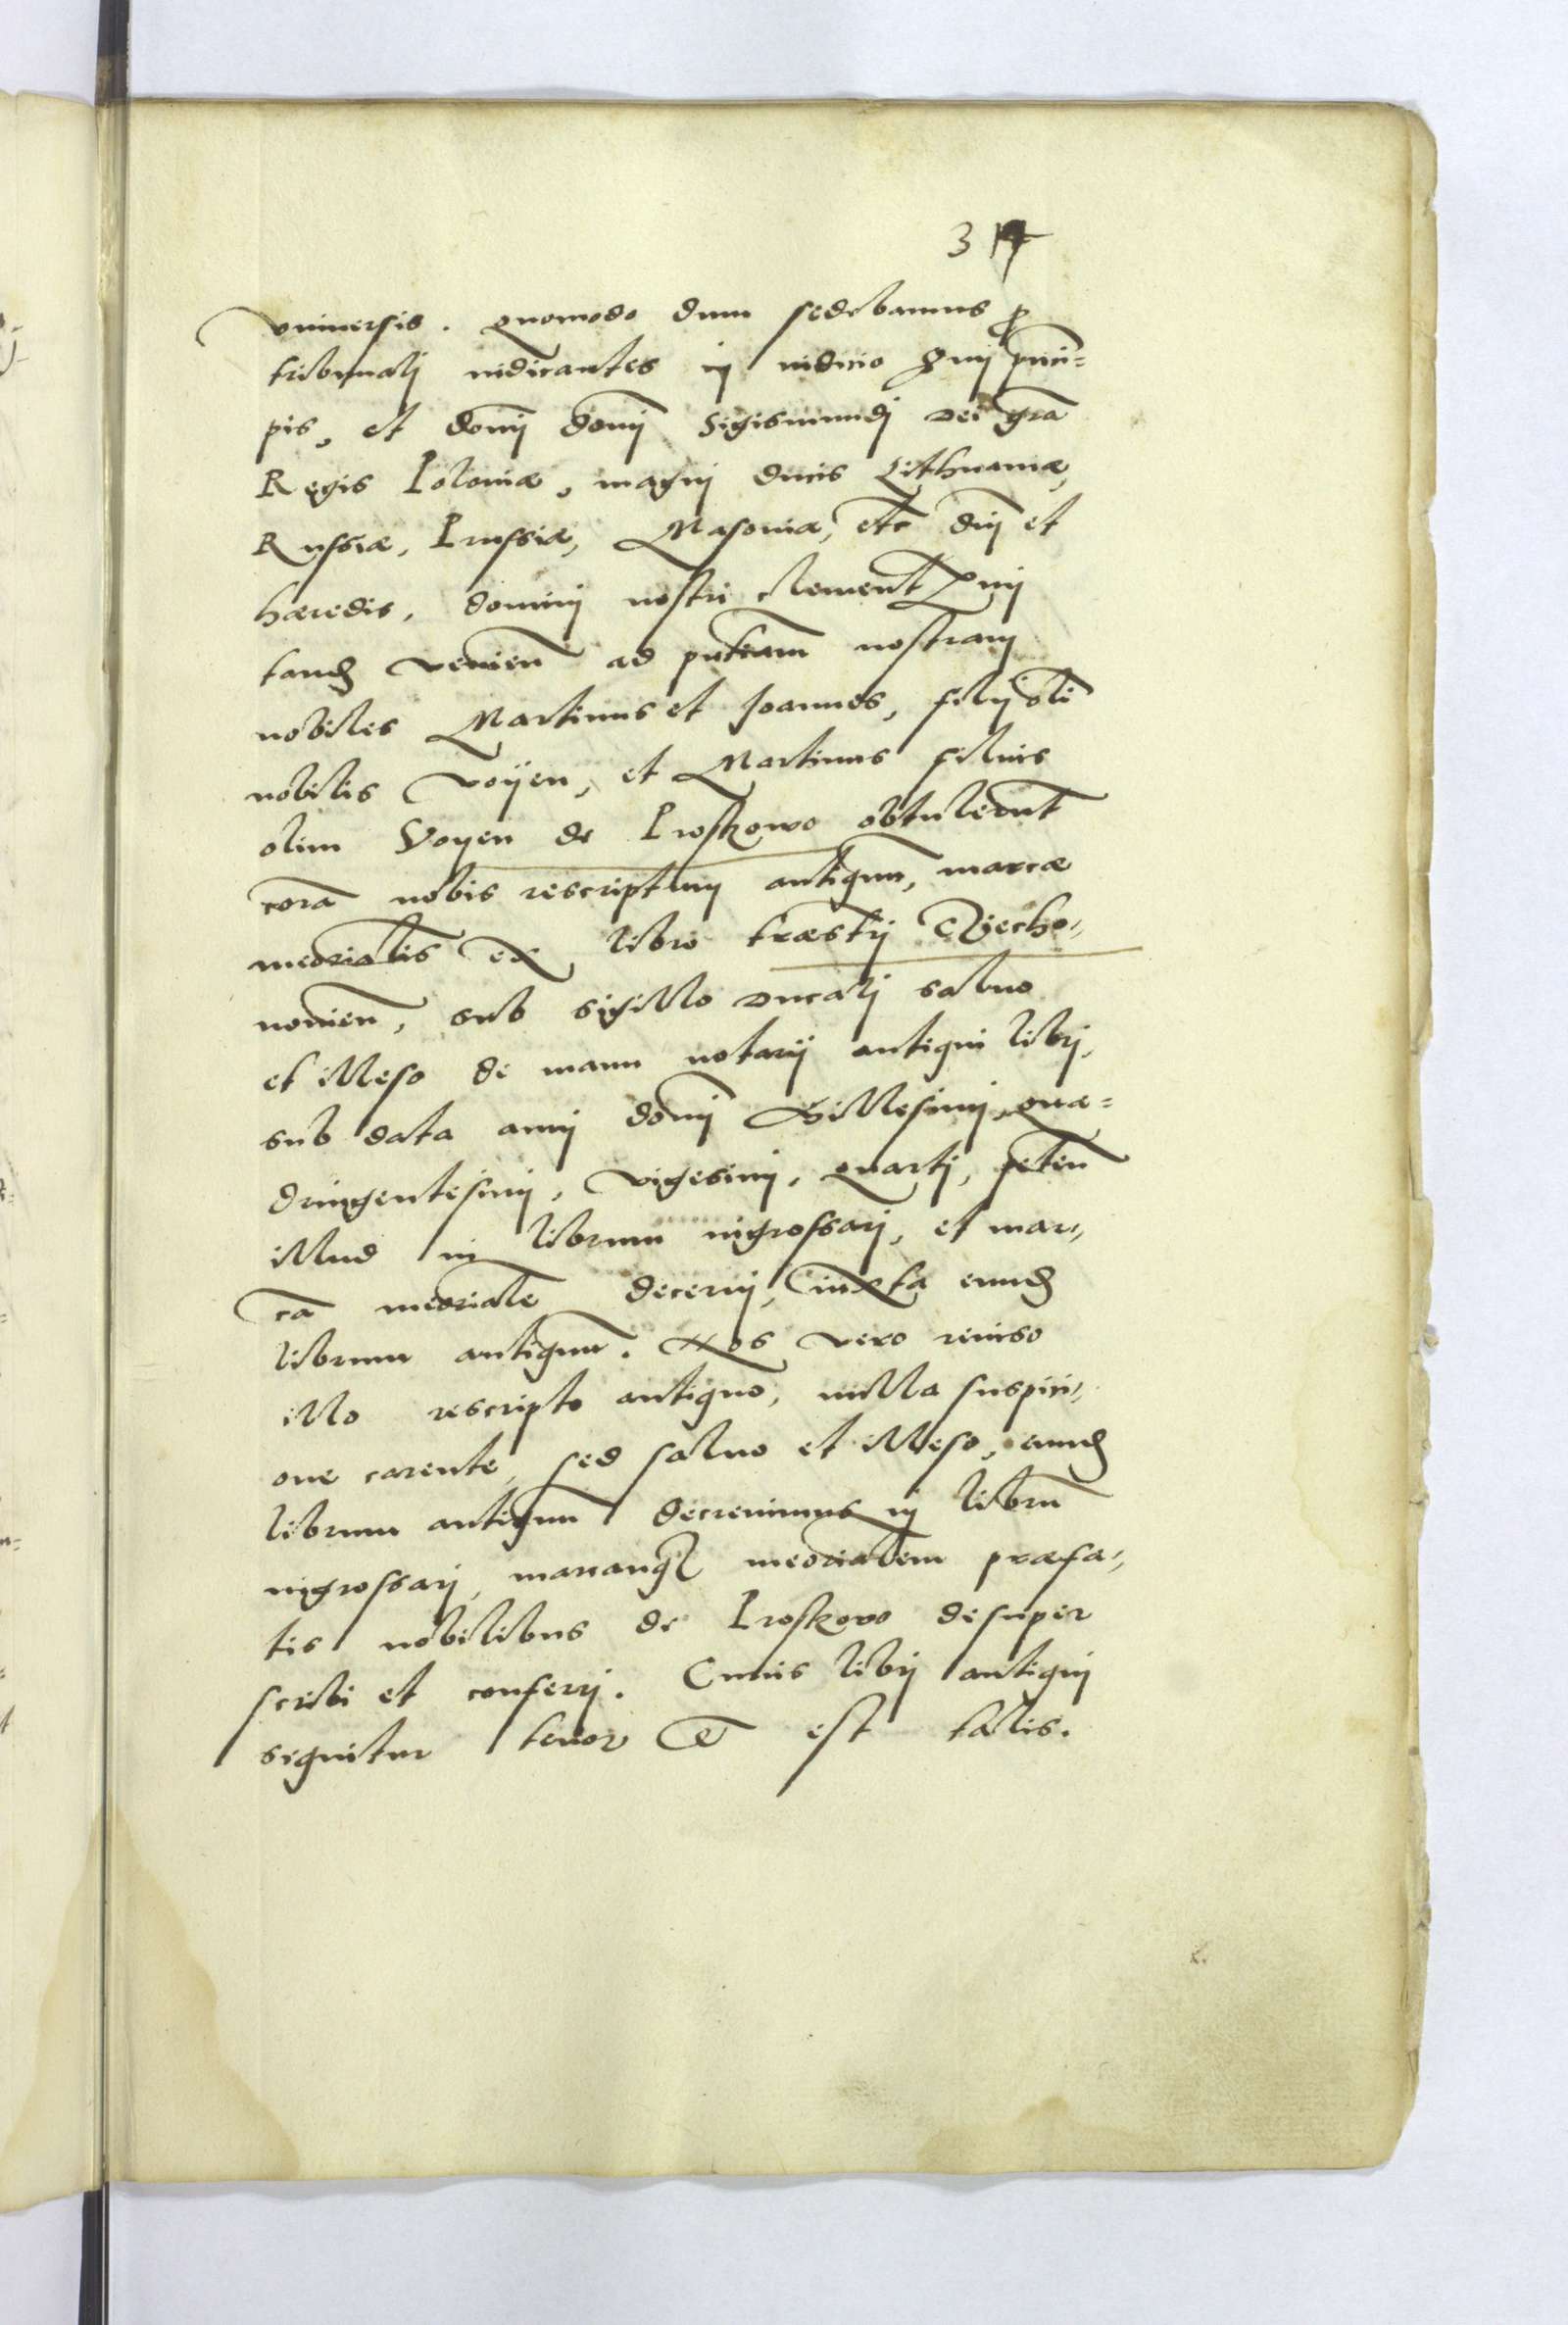 317
vniuersis. quomodo dum sedebamus ꝑ
tribunalj iudicantes in iudicio Sr̃mj princi=
pis, et domj̃ domj̃ Sigismundj Dei gr̃a
Regis Poloniæ, magnj ducis Lithuaniæ,
Russiæ, Prussiæ, Masoviæ, etc̃ dnj̃ et
hæredis, dominj nostri clement̃mj
tandẽ venieñ ad pñtiam nostram
nobiles Martinus et Joannes, filij oli
nobilis Voÿen, et Martinus filius
olim Voyen de Proskowo obtulerunt̃
corã nobis rescriptum antiquũ, marcæ
meo̅rialis ex libro træstÿ Ciecho,,
nouieñ, sub sigillo Ducalj saluo
et illeso de manu notarÿ antiqui librj,
sub data annj domj̃ Millesimj, qua=
dringentesimj, vigesimj, quartj, peteñ
illud in librum ingrossarj, et mar,,
cã meo̅rialẽ decernj, iuxta eundẽ
librum antiquũ. Nos vero reuiso
illo rescripto antiquo, nulla suspici,,
one carente, sed saluo et illeso, eundẽ
librum antiquũ decreuimus in librũ
ingrossarj, marcamqꝫ meo̅rialem præfa,,
tis nobilibus de Proskowo desuper
scribi et conferrj. Cuius librj antiquj
sequitur tenor et est talis.